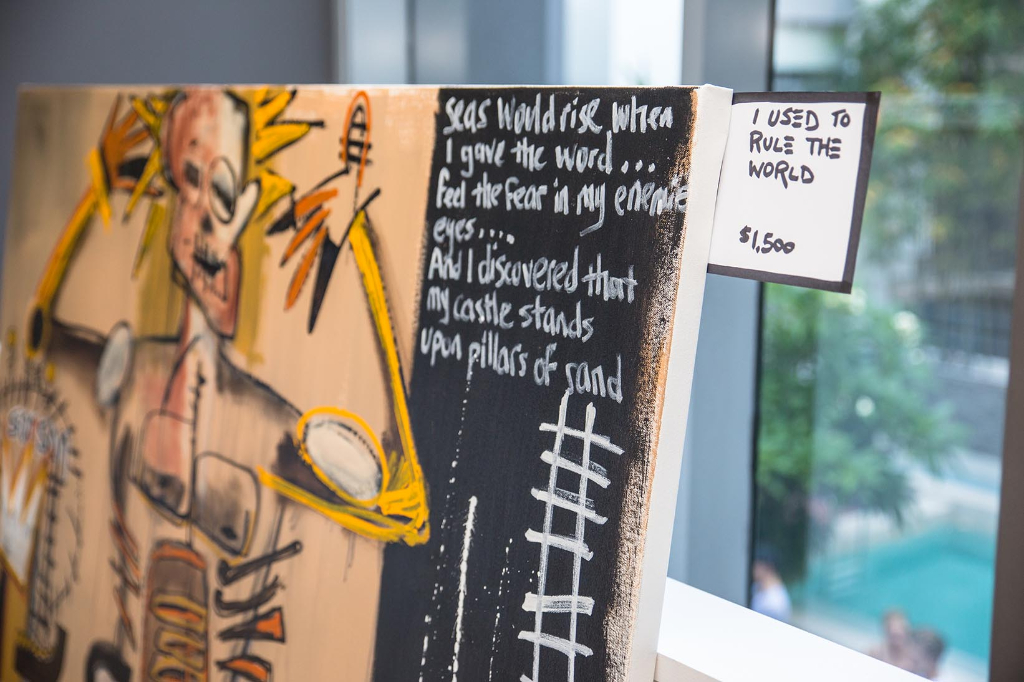 seas would rise when
I gave the word...
feel the fear in my enemie
eyes....
And I discovered that
my castle stands
upon pillars of sand
I USED TO
RULE THE
WORLD
$1,500